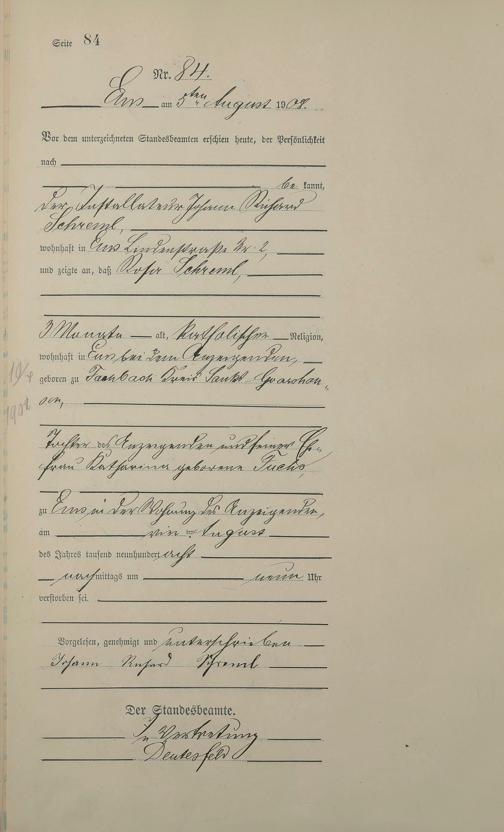 Seite 84
Nr. 84.
Ems am 5ten August 1908.
Vor dem unterzeichneten Standesbeamten erschien heute, der Persönlichkeit
nach
be kannt,
der Installateur Johann Richard
Schreml,
wohnhaft in Ems Lindenstraße Nr. 2,
und zeigte an, daß Rosa Schreml,
3 Monate alt, katholischer Religion,
wohnhaft in Ems bei dem Anzeigenden,
geboren zu Fachbach Kreis Sankt Goarshau-
sen,
Tochter des Anzeigenden und seiner Ehe-
frau Katharina geborene Fuchs,
zu Ems in der Wohnung des Anzeigenden,
am vier ten August
des Jahres tausend neunhundert acht
nachmittags um neun Uhr
verstorben sei.
Vorgelesen, genehmigt und unterschrieben
Johann Richard Schreml
Der Standesbeamte.
In Vertretung